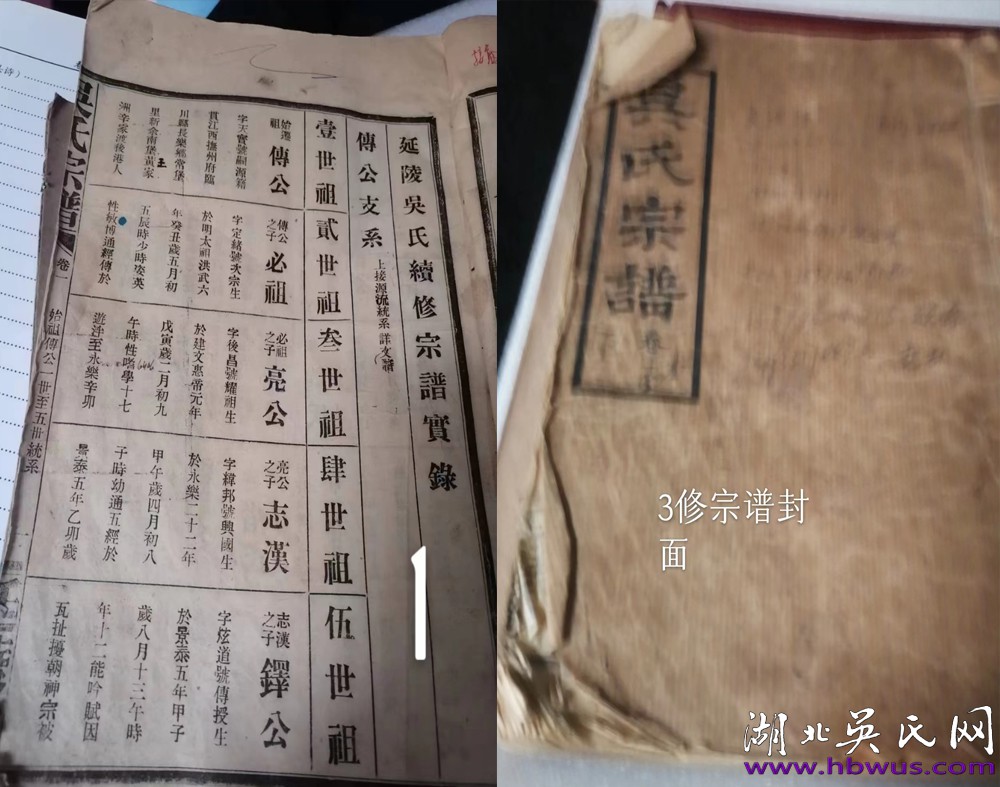 延陵吳氏續修宗譜實錄
傳公支系
上接源流統系詳文譜
壹世祖
始遷祖
傳公
字天寶號嗣源籍
貫江西撫州府臨
川縣長樂鄉常堡
里新余南堡黃家
洲李家渡後港人
貳世祖
傳公之子
必祖
字定緒號次宗生
於明太祖洪武六
年癸丑歲五月初
五辰時少時姿英
性敏博通經傳於
叁世祖
必祖之子
亮公
字後昌號耀祖生
於建文惠帝元年
戊寅歲二月初九
午時性嗜學十七
遊泮至永樂辛卯
肆世祖
亮公之子
志漢
字緯邦號興國生
於永樂二十二年
甲午歲四月初八
子時幼通五經於
景泰五年乙卯歲
伍世祖
志漢之子
鐸公
字炫道號傳授生
於景泰五年甲子
歲八月十三午時
年十二能吟賦因
瓦扯擾朝神宗被
吳氏宗譜
卷一
始祖傳公一世至五世統系
1
吳氏宗譜
3修宗谱封
面
湖北吴氏网
www.hbwus.com